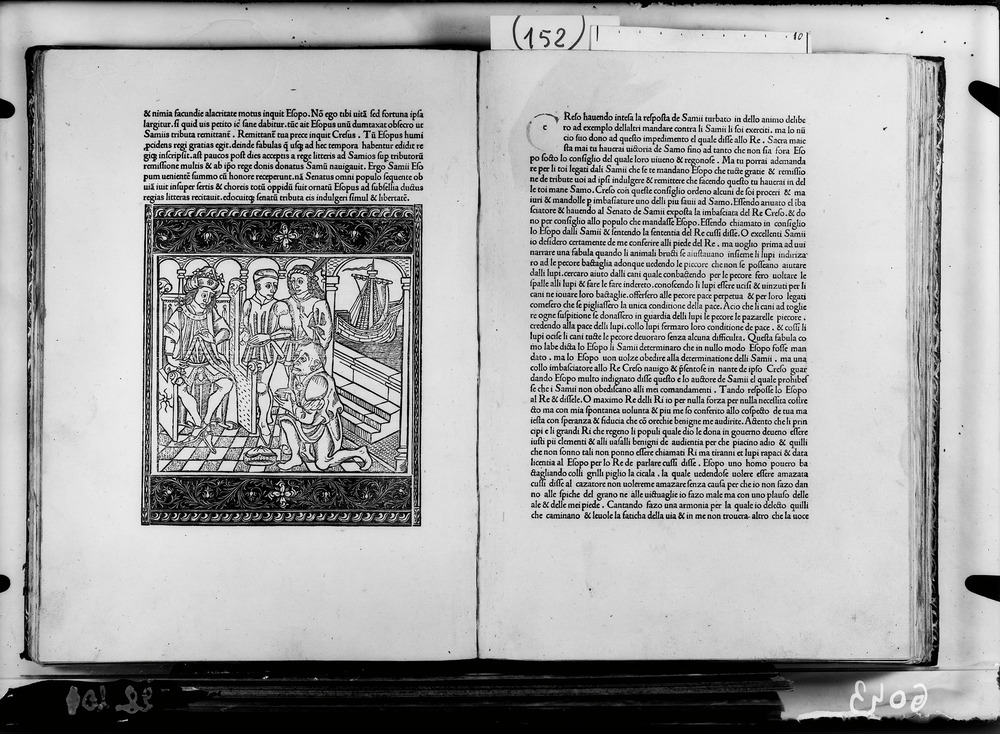 (152)
10
& nimia facundie alacritate motus inquit Esopo. Nō ego tibi uitā sed fortuna ipsa
largitur. si quid uis petito id sane dabitur. tūc ait Esopus unū dumtaxat obsecro ut
Samiis tributa remittant. Remittant tua prece inquit Cresus. Tū Esopus humi
pcidens regi gratias egit. deinde fabulas q̄ usq; ad hec tempora habentur edidit re
giq; inscripsit. ast paucos post dies acceptis a rege litteris ad Samios sup tributorū
remissione multis & ab ipso rege donis donatus Samū nauigauit. Ergo Samii Eso
pum uenientē summo cū honore receperunt. nā Senatus omni populo sequente ob
uiā iuit insuper sertis & choreis totū oppidū fuit ornatū Esopus ad subsellia ductus
regias litteras recitauit. edocuitq; senatū tributa eis indulgeri simul & libertatē.
c
Reso hauendo intesa la resposta de Samii turbato in dello animo delibe
ro ad exemplo dellaltri mandare contra li Samii li soi exerciti. ma lo nū
cio suo dono ad questo impedimento el quale disse allo Re. Sacra maie
sta mai tu hauerai uictoria de Samo fino ad tanto che non sia fora Eso
po socto lo consiglio del quale loro uiueno & regonose. Ma tu porrai ademanda
re per li toi legati dali Samii che se te mandano Esopo che tucte gratie & remissio
ne de tribute uoi ad ipsi indulgere & remittere che facendo questo tu hauerai in del
le toi mane Samo. Creso con queste consiglio ordeno alcuni de soi proceri & ma
iuri & mandolle p imbasiature uno delli piu sauii ad Samo. Essendo ariuato el iba
sciatore & hauendo al Senato de Samii exposta la imbasciata del Re Creso. & do
no per consiglio allo populo che mandasse Esopo. Essendo chiamato in consiglio
lo Esopo dalli Samii & sentendo la sententia del Re cussi disse. O excellenti Samii
io desidero certamente de me conferire alli piede del Re. ma uoglio prima ad uui
narrare una fabula quando li animali bructi se aiustauano insieme li lupi indiriza
ro ad le pecore bactaglia adonque uedendo le piccore che non se posseano aiutare
dalli lupi. cercaro aiuto dalli cani quale conbactendo per le pecore fero uoltare le
spalle alli lupi & fare le fare indereto. conoscendo li lupi essere ucisi & uinzuti per li
cani ne iouare loro bactaglie. offersero alle pecore pace perpetua & per loro legati
comesero che se pigliassero la unica conditione della pace. Acio che li cani ad toglie
re ogne suspitione se donassero in guardia delli lupi le pecore le pazarelle piecore.
credendo alla pace delli lupi. collo lupi fermaro loro conditione de pace. & cossi li
lupi ocise li cani tucte le pecore deuoraro senza alcuna difficulta. Questa fabula co
mo labe dicta lo Esopo li Samii determinaro che in nullo modo Esopo fosse man
dato. ma lo Esopo uon uolze obedire alla determinatione delli Samii. ma una
collo imbasciatore allo Re Creso nauigo & p̄sentose in nante de ipso Creso guar
dando Esopo multo indignato disse questo e lo auctore de Samii el quale prohibes
se che i Samii non obediscano alli mei comandamenti. Tando respose lo Esopo
al Re & dissele. O maximo Re delli Ri io per nulla forza per nulla necessita costre
cto ma con mia spontanea uolunta & piu me so conferito allo cospecto de tua ma
iesta con speranza & fiducia che cō orechie benigne me audirite. Actento che li prin
cipi e li grandi Ri che regeno li populi quale dio le dona in gouerno deueno essere
iusti pii clementi & alli uasalli benigni de audientia per che piacino adio & quilli
che non sonno tali non ponno essere chiamati Ri ma tiranni et lupi rapaci & data
licentia al Esopo per lo Re de parlare cussi disse. Esopo uno homo pouero ba
ctagliando colli grilli piglio la cicala. la quale uedendose uolere essere amazata
cussi disse al cazatore non uolereme amazare senza causa per che io non fazo dan
no alle spiche del grano ne alle uictuaglie io fazo male ma con uno plauso delle
ale & delle mei piede. Cantando fazo una armonia per la quale io delecto quilli
che caminano & leuole la faticha della uia & in me non trouera. altro che la uoce
6043